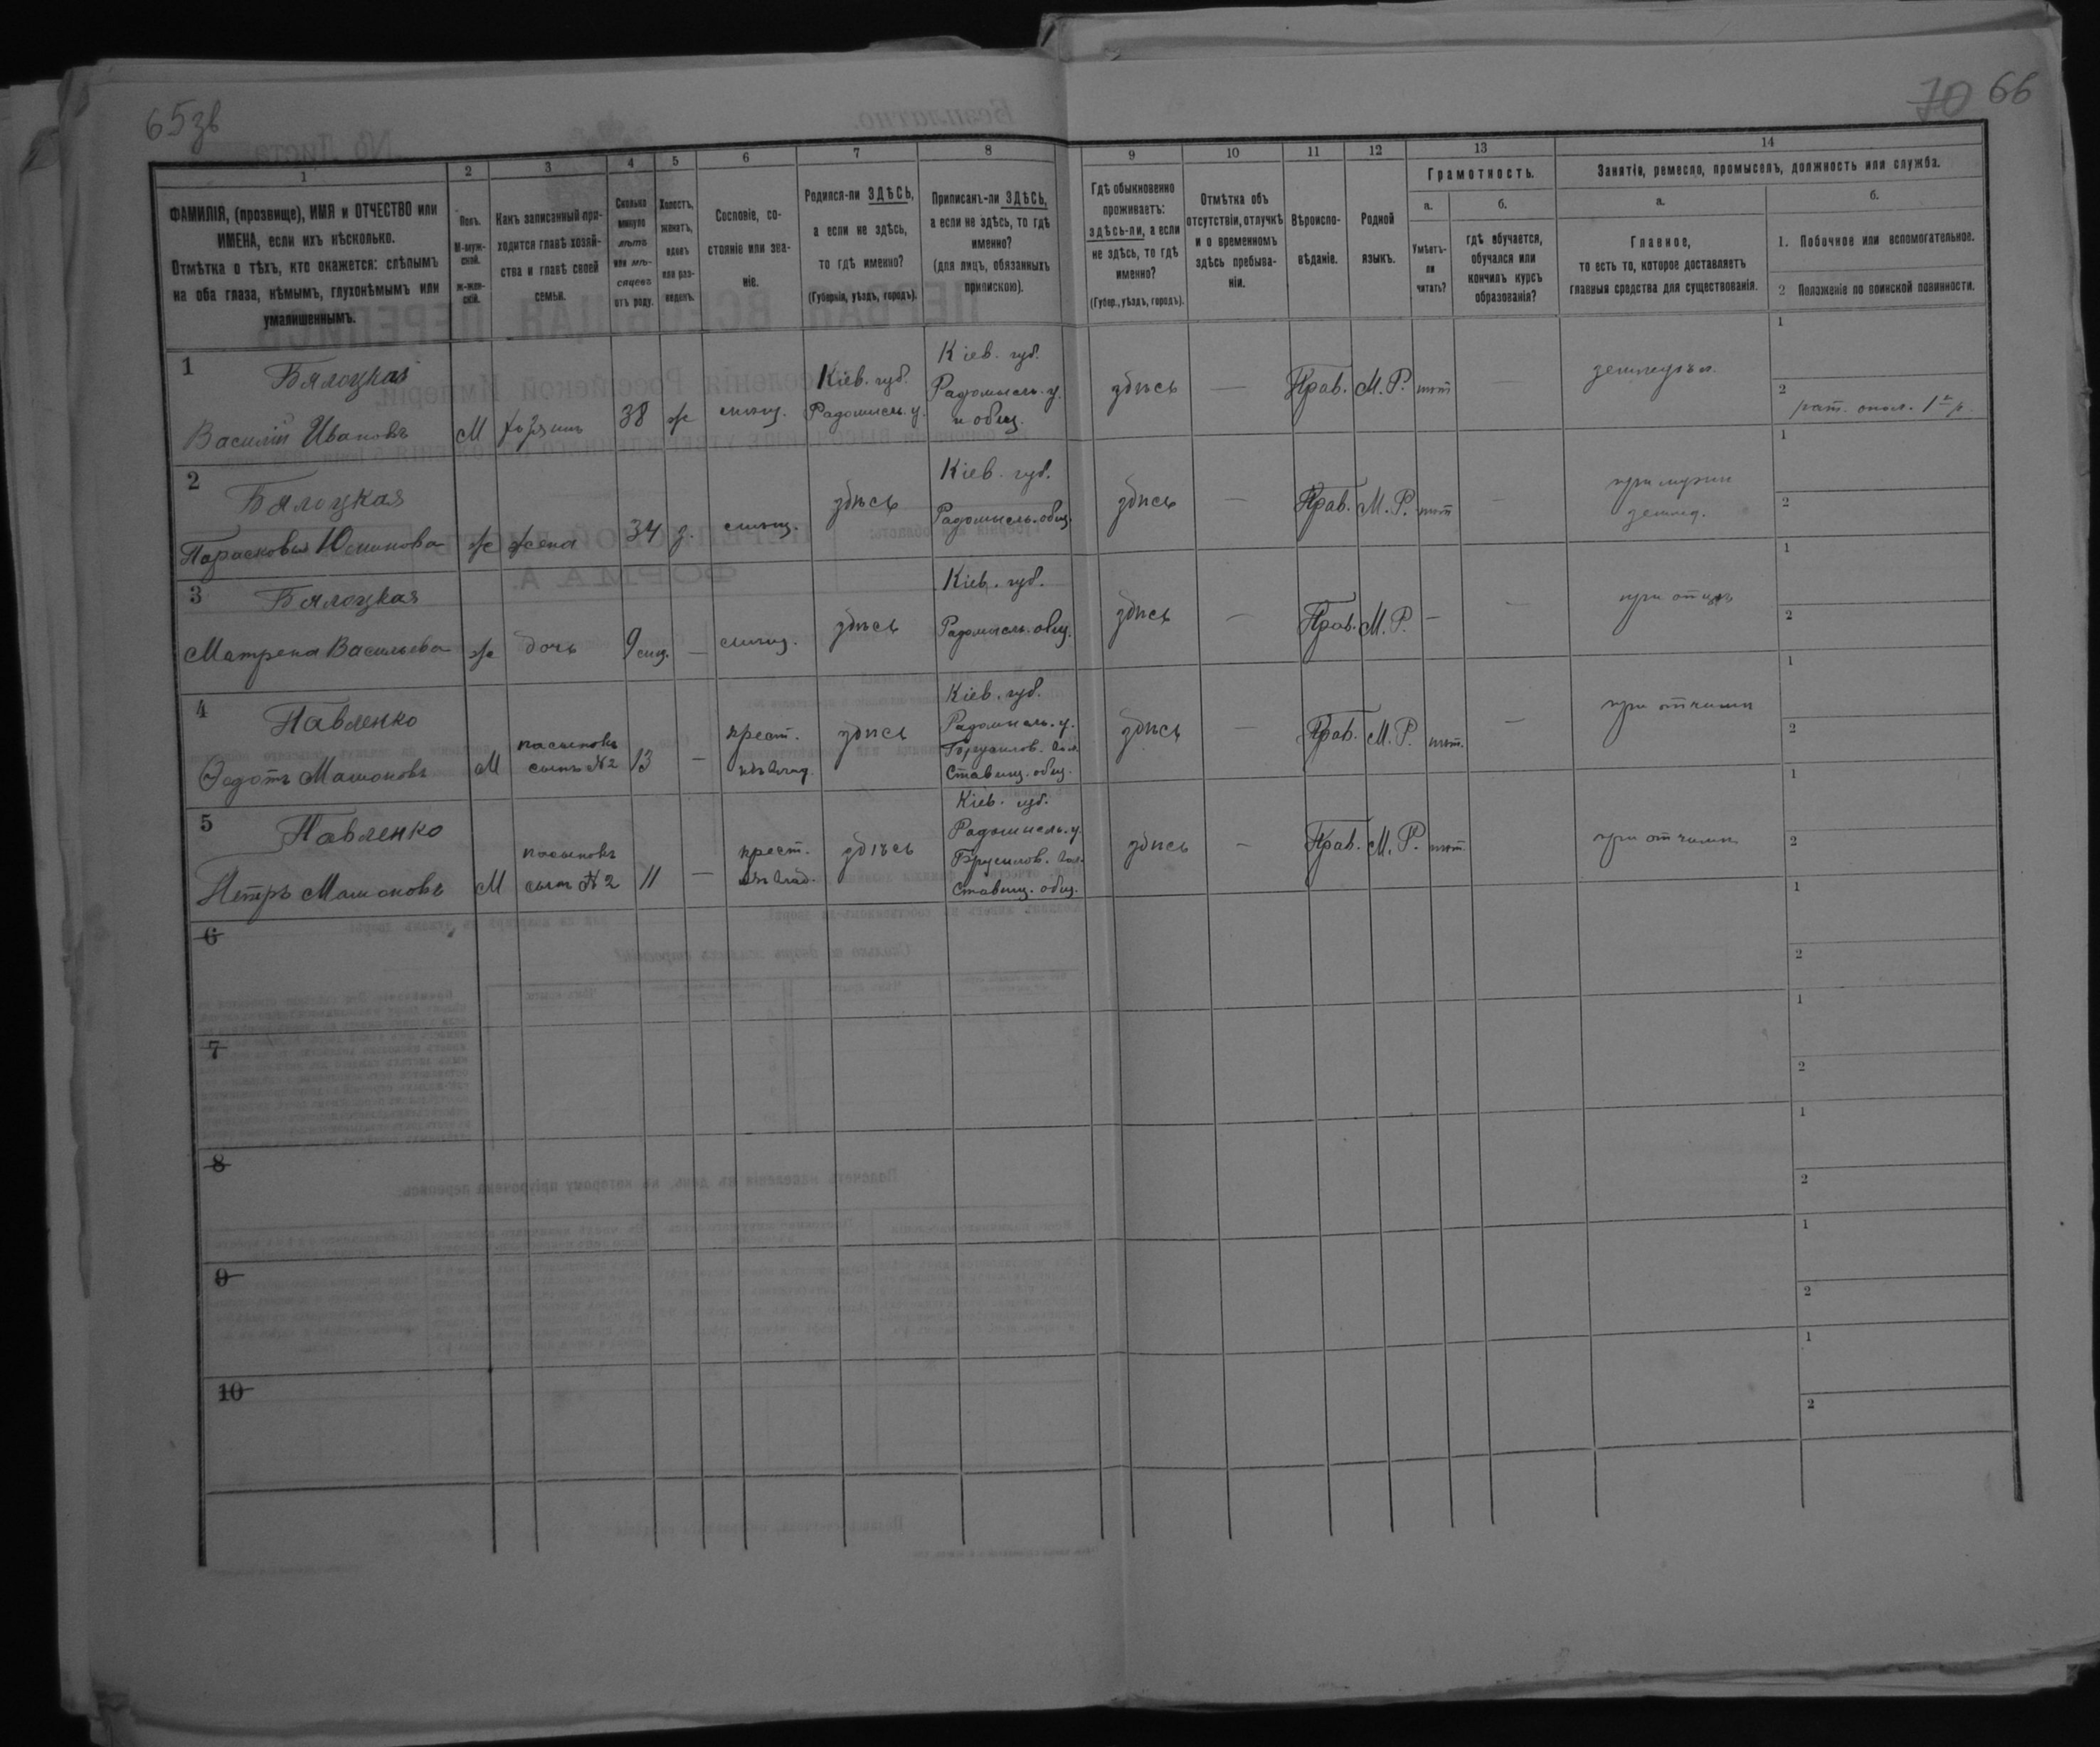 65зв
70 66
1
2
3
4
5
6
7
8
9
10
11
12
13
14
ФАМИЛІЯ, (прозвище), ИМЯ и ОТЧЕСТВО или
ИМЕНА, если ихъ нѣсколько.
Отмѣтка о тѣхъ, кто окажется: слѣпымъ
на оба глаза, нѣмымъ, глухонѣмымъ или
умалишеннымъ.
Полъ.
М-муж-
ской.
ж-жен-
скій.
Какъ записанный при-
ходится главѣ хозяй-
ства и главѣ своей
семьи.
Сколько
минуло
лѣтъ
или мѣ-
сяцевъ
отъ роду.
Холостъ,
женатъ,
вдовъ
или раз-
веденъ.
Сословіе, со-
стояніе или зва-
ніе.
Родился-ли ЗДѢСЬ,
а если не здѣсь,
то гдѣ именно?
(Губернія, уѣздъ, городъ).
Приписанъ-ли ЗДѢСЬ,
а если не здѣсь, то гдѣ
именно?
(для лицъ, обязанныхъ
припискою).
Гдѣ обыкновенно
проживаетъ:
здѣсь-ли, а если
не здѣсь, то гдѣ
именно?
(Губер., уѣздъ, городъ).
Отмѣтка объ
отсутствіи, отлучкѣ
и о временномъ
здѣсь пребыва-
ніи.
Вѣроиспо-
вѣданіе.
Родной
языкъ.
Грамотность.
а.
Умѣетъ-
ли
читать?
б.
гдѣ обучается,
обучался или
кончилъ курсъ
образованія?
Занятіе, ремесло, промыселъ, должность или служба.
а.
Главное,
то есть то, которое доставляетъ
главныя средства для существованія.
б.
1. Побочное или вспомогательное.
2 Положеніе по воинской повинности.
1
Бялоцкай
Василій Ивановъ
М
хозяинъ
38
ж
мѣщ.
Кіев. губ.
Радомысл. у.
Кіев. губ.
Радомысль. у.
и общ.
здѣсь
—
Прав.
М. Р.
нѣт
—
1
2
рат. опол. 1го р.
2
Бялоцкая
Парасковья
ж
жена
34
з.
мѣщ.
здѣсь
Кіев. губ.
Радомысль. общ.
здѣсь
—
Прав.
М. Р.
нѣт
—
при мужи
землед.
1
2
3
Бялоцкая
Матрена Васильева
ж
дочь
9
—
мѣщ.
здѣсь
Кіев. губ.
Радомысль. общ.
здѣсь
—
Прав.
М. Р.
—
—
при отцѣ
1
2
4
Павленко
Федотъ
М
пасынокъ
сынъ №2
13
—
крест.
здѣсь
Кіев. губ.
Радомысль. у.
Брусилов. вол.
Ставищ. общ.
здѣсь
—
Прав.
М. Р.
нѣт.
—
при отчими
1
2
5
Павленко
Петръ
М
пасынокъ
сынъ №2
11
—
крест.
здѣсь
Кіев. губ.
Радомысль. у.
Брусилов. вол.
Ставищ. общ.
здѣсь
—
Прав.
М. Р.
нѣт.
при отчими
1
2
6
1
2
7
1
2
8
1
2
9
1
2
10
1
2